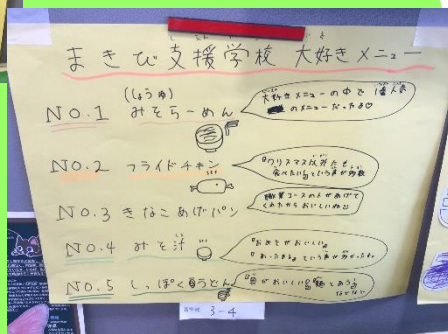 まきび支援学校 大好きメニュー
(しょうゆ)
NO.1 みそらーめん
大好きメニューの中で
のメニューだったよ♡
NO.2 フライドチキン
クリスマス以外にも
食べたい!という声が多数
NO.3 きなこあげパン
職業コースの人があげて
くれたからおいしいね
NO.4 みそ汁
おだしがおいしい。
という声が多かった。
NO.5 しっぽくうどん
がおいしい
3-4